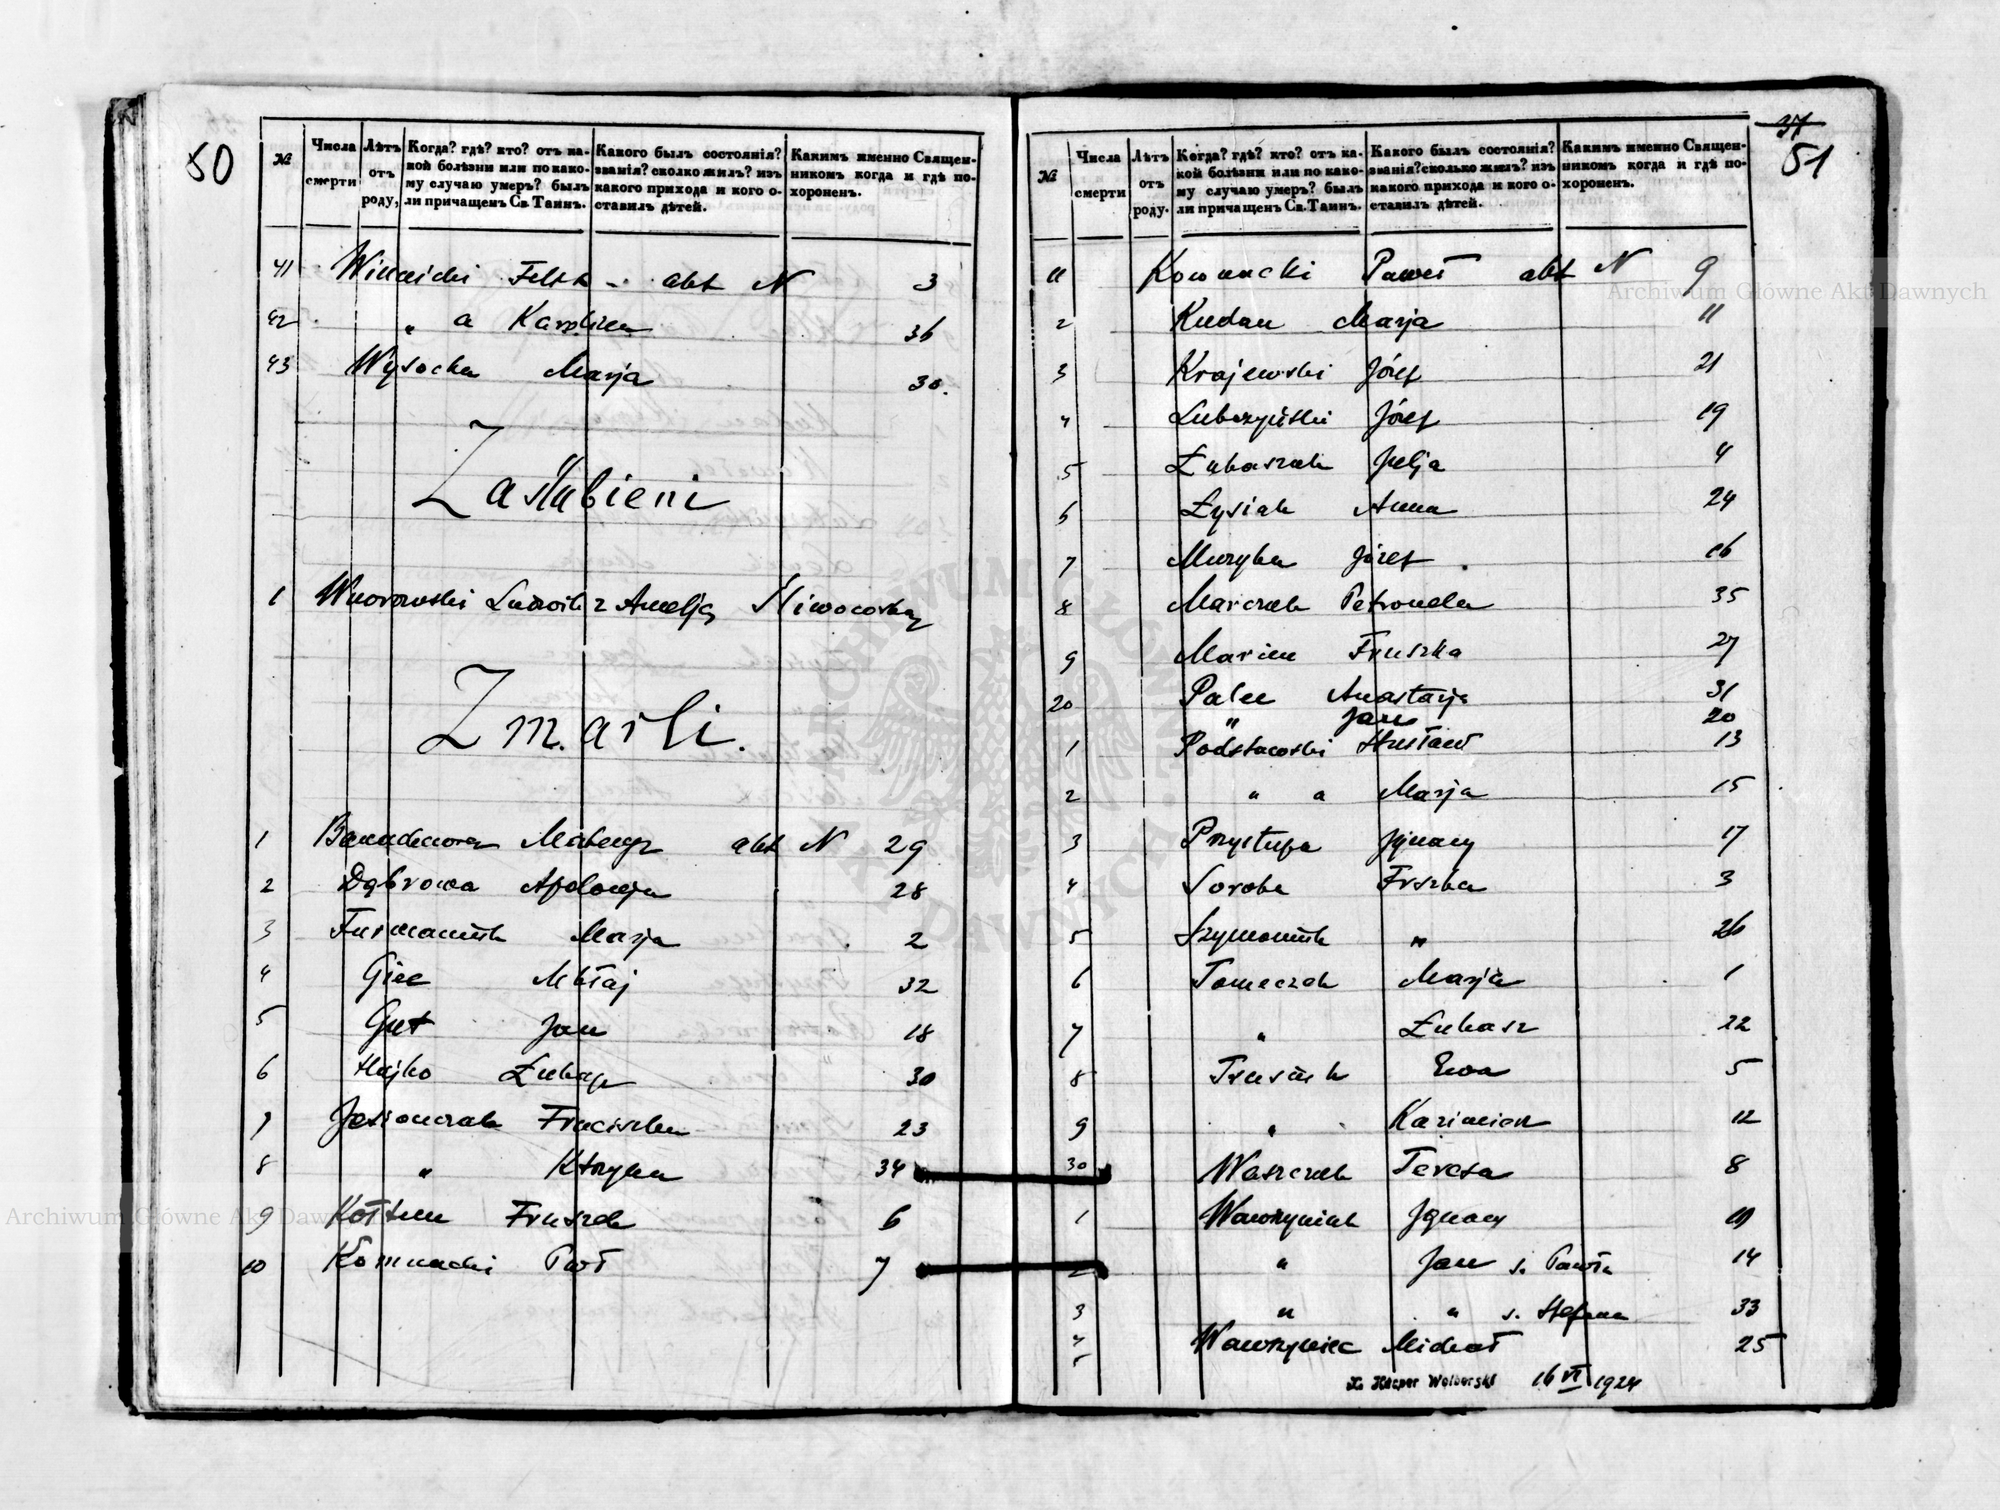 50
№
Числа смерти
Лѣтъ отъ роду,
Когда? гдѣ? кто? отъ ка-
кой болѣзни или по како-
му случаю умеръ? былъ
ли причащенъ Св. Таинъ.
Какого былъ состоянія?
званія? сколко жилъ? изъ
какого прихода и кого о-
ставилъ дѣтей.
Какимъ именно Священ-
никомъ когда и гдѣ по-
хороненъ.
41 Winnicki Felix akt N 3
42 " a Karolina 36
43 Wysocka Marja 30.
Zaślubieni
1 Wworowski Ludwik z Amelją Śliwocową
Zmarli.
1 Mateusz akt N 29
2 Dąbrowa Apolonja 28
3 Furmaniuk Marja 2
4 Giec Mkłaj 32
5 Gut Jan 18
6 Hajko Łukasz 30
7 Jesionczak Franciszka 23
8 " Ktrzyna 34
9 Kołtun Fruszek 6
10 Komnacki Pweł 7
37
51
№
Числа смерти
Лѣтъ отъ роду.
Когда? гдѣ? кто? отъ ка-
кой болѣзни или по како-
му случаю умеръ? былъ
ли причащенъ Св. Таинъ.
Какого былъ состоянія?
званія? сколько жилъ? изъ
какого прихода и кого о-
ставилъ дѣтей.
Какимъ именно Священ-
никомъ когда и гдѣ по-
хороненъ.
11 Komnacki Paweł akt N 9
2 Kudan Marja 11
3 Krajewski Józef 21
4 Lubczyński Józef 19
5 Łukaszek Julja 4
6 Łysiak Anna 24
7 Muzyka Józef 16
8 Marczak Petronela 35
9 Maricu Fruszka 27
20 Palec Anastazja 31
" Jan 20
1 Podstawski Gustaw 13
2 " a Marja 15
3 Przystupa Ignacy 17
4 Soroka Frszka 3
5 Szymoniuk " 26
6 Tomeczek Marja 1
7 " Łukasz 22
8 Trusiuk Ewa 5
9 " Kazimierz 12
30 Waszczuk Teresa 8
1 Wawryniuk Ignacy 10
2 " Jan s. Pawła 14
3 " " s. Stefana 33
Wawrzyniec Michał 25
X. Kacper Wolborski 16 VI 1924
Archiwum Główne Akt Dawnych
Archiwum Główne Akt Dawnych
ARCHIWUM GŁÓWNE AKT DAWNYCH